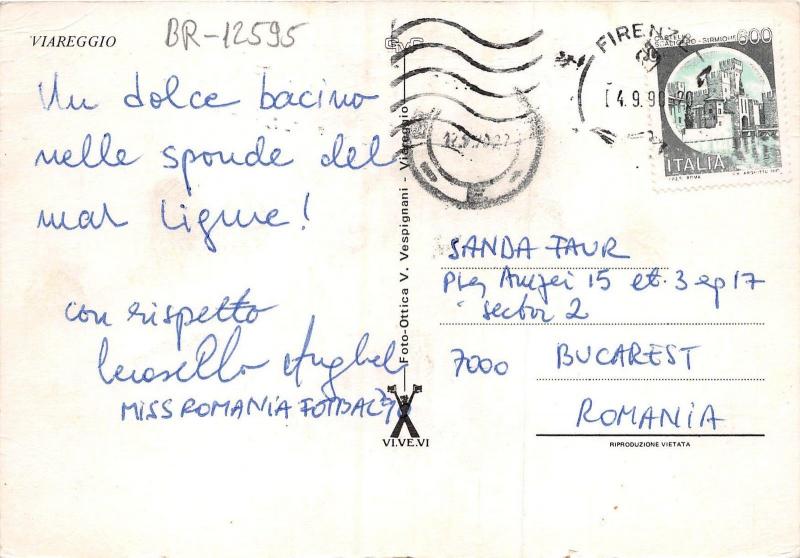 VIAREGGIO
BR-12595
Un dolce bacino
nelle sponde del
mar Ligure!
con rispetto
Anghel
MISS ROMANIA FOTBAL '90
VI.VE.VI
Foto-Ottica V. Vespignani - Viareggio
FIRENZE
4.9.90
CASTELLO SCALIGERO - SIRMIONE
600
ITALIA
I.P.Z.S. ROMA
SANDA FAUR
Piţa Amzei 15 et. 3 ap 17
sector 2
7000 BUCAREST
ROMANIA
RIPRODUZIONE VIETATA